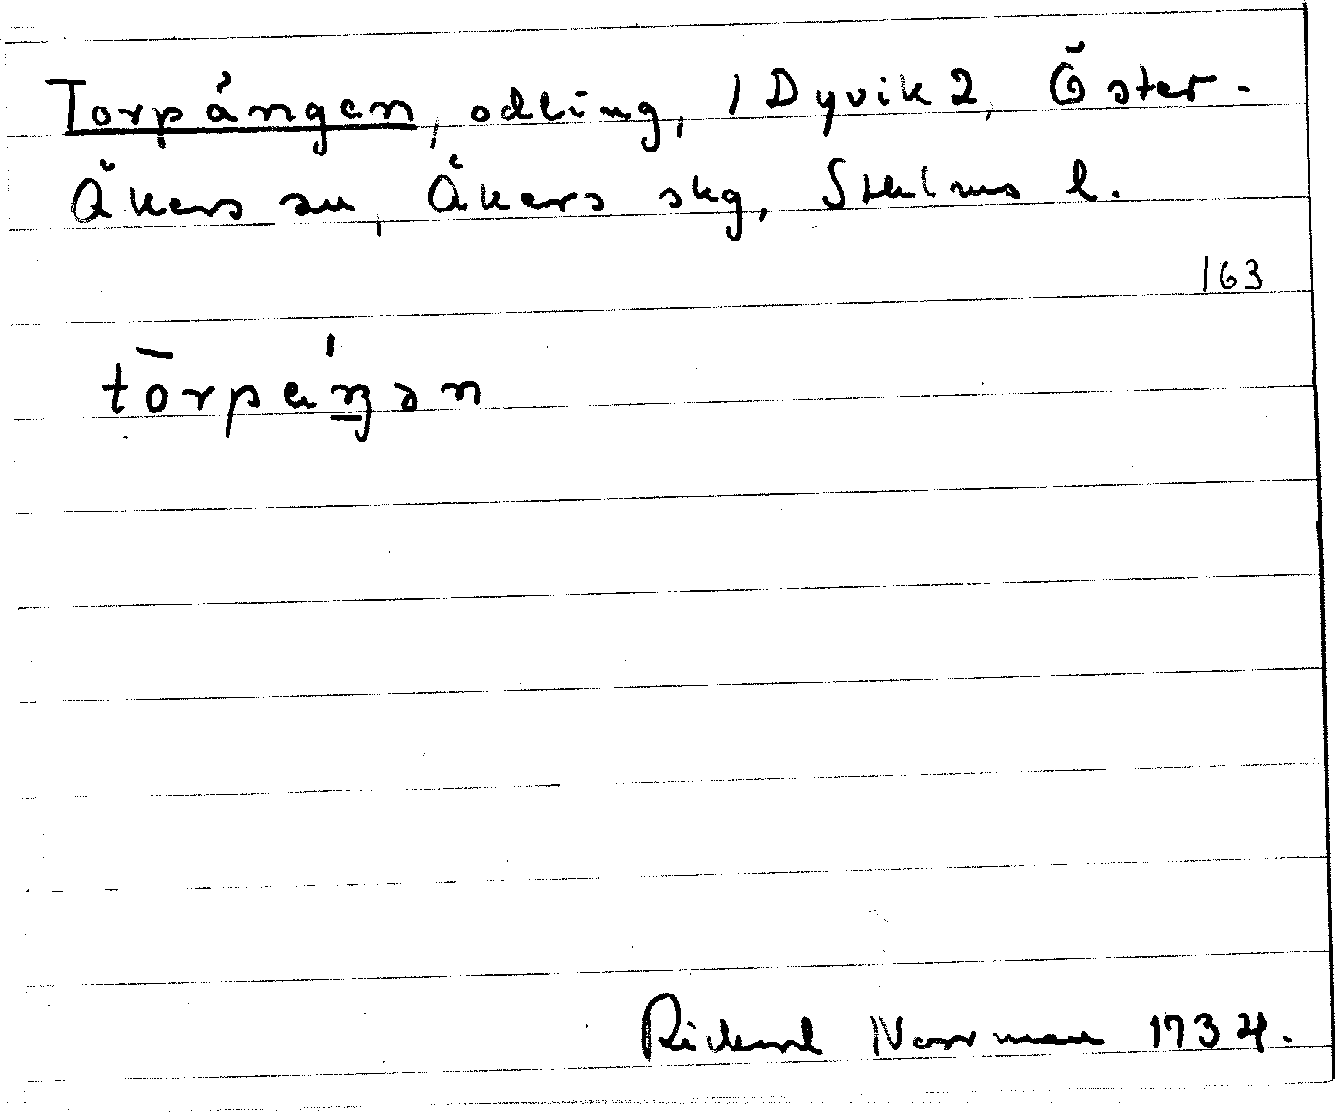 Torpängen, odling, 1 Dyvik 2, Öster-
Åkers sn, Åkers skg, Sthlms l.
163
Rickard Norrman 1934.